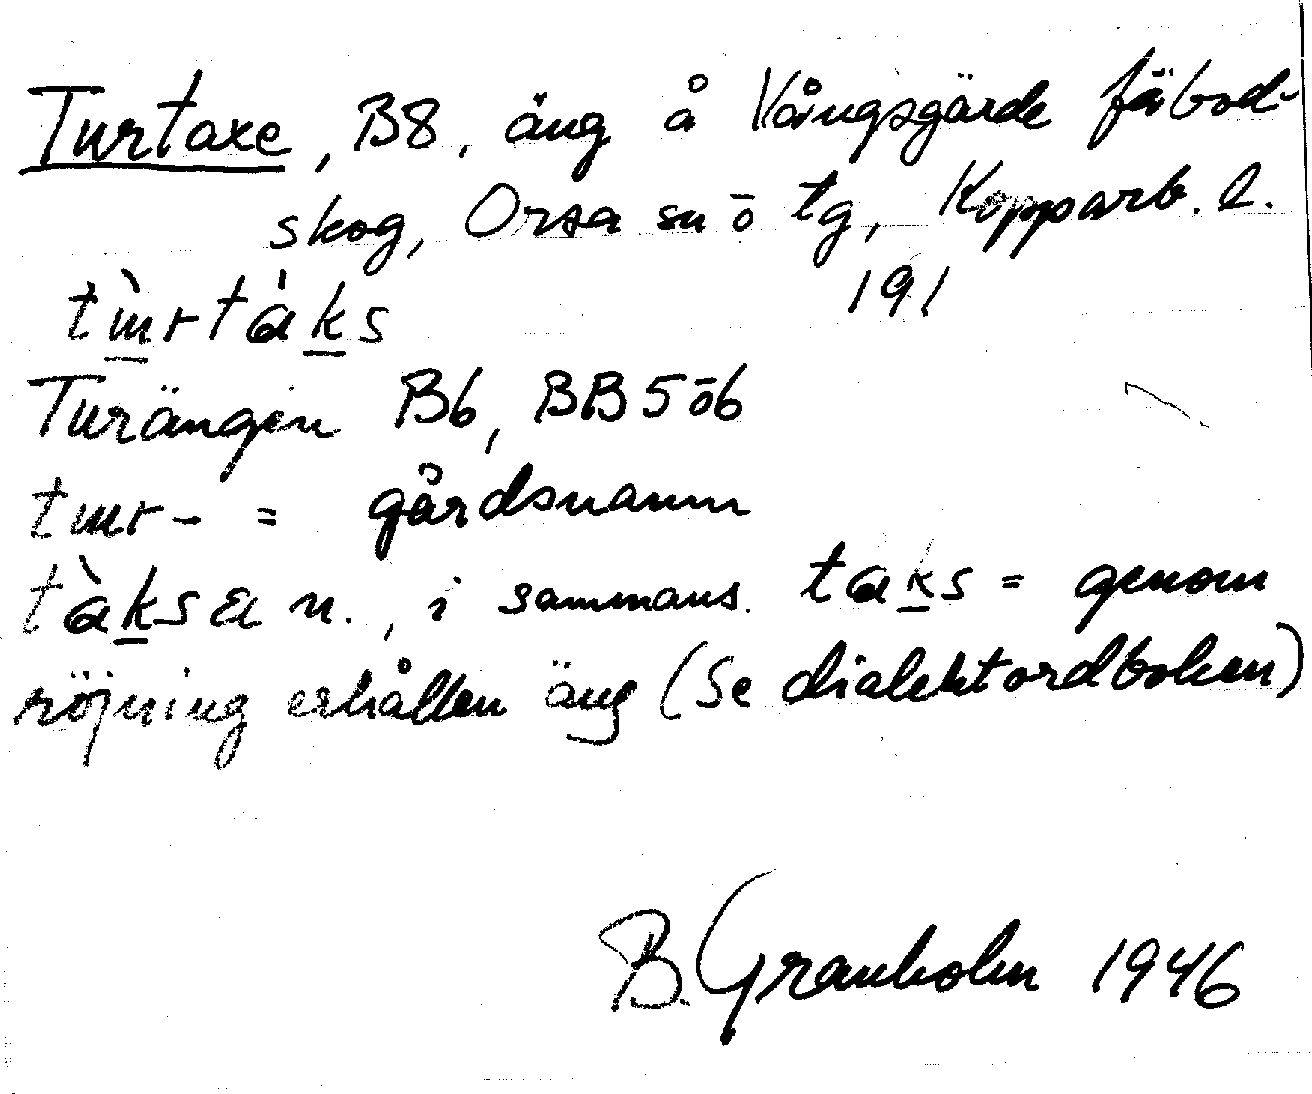 Turtaxe, B8, äng å Vångsgärde fäbod-
skog, Orsa sn ö tg, Kopparb. l.
191
tɯ̀rtàks
Turängen B6, BB5ö6
tɯr- = gårdsnamn
tàksa n., i sammans. taks = genom
röjning erhållen äng (Se dialektordboken)
B. Granholm 1946